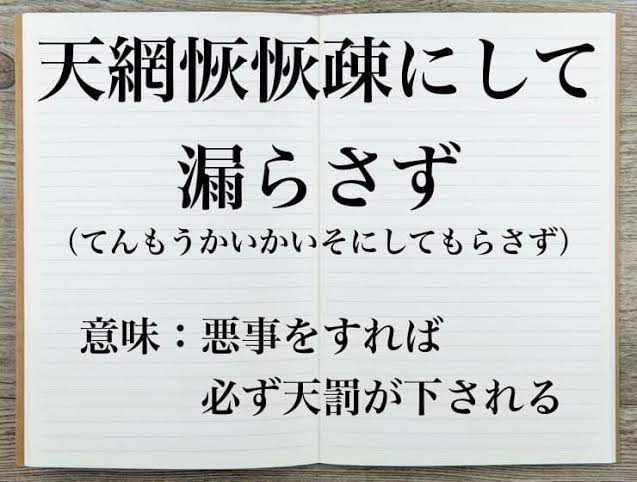 天網恢恢疎にして
漏らさず
（てんもうかいかいそにしてもらさず）
意味：悪事をすれば
必ず天罰が下される